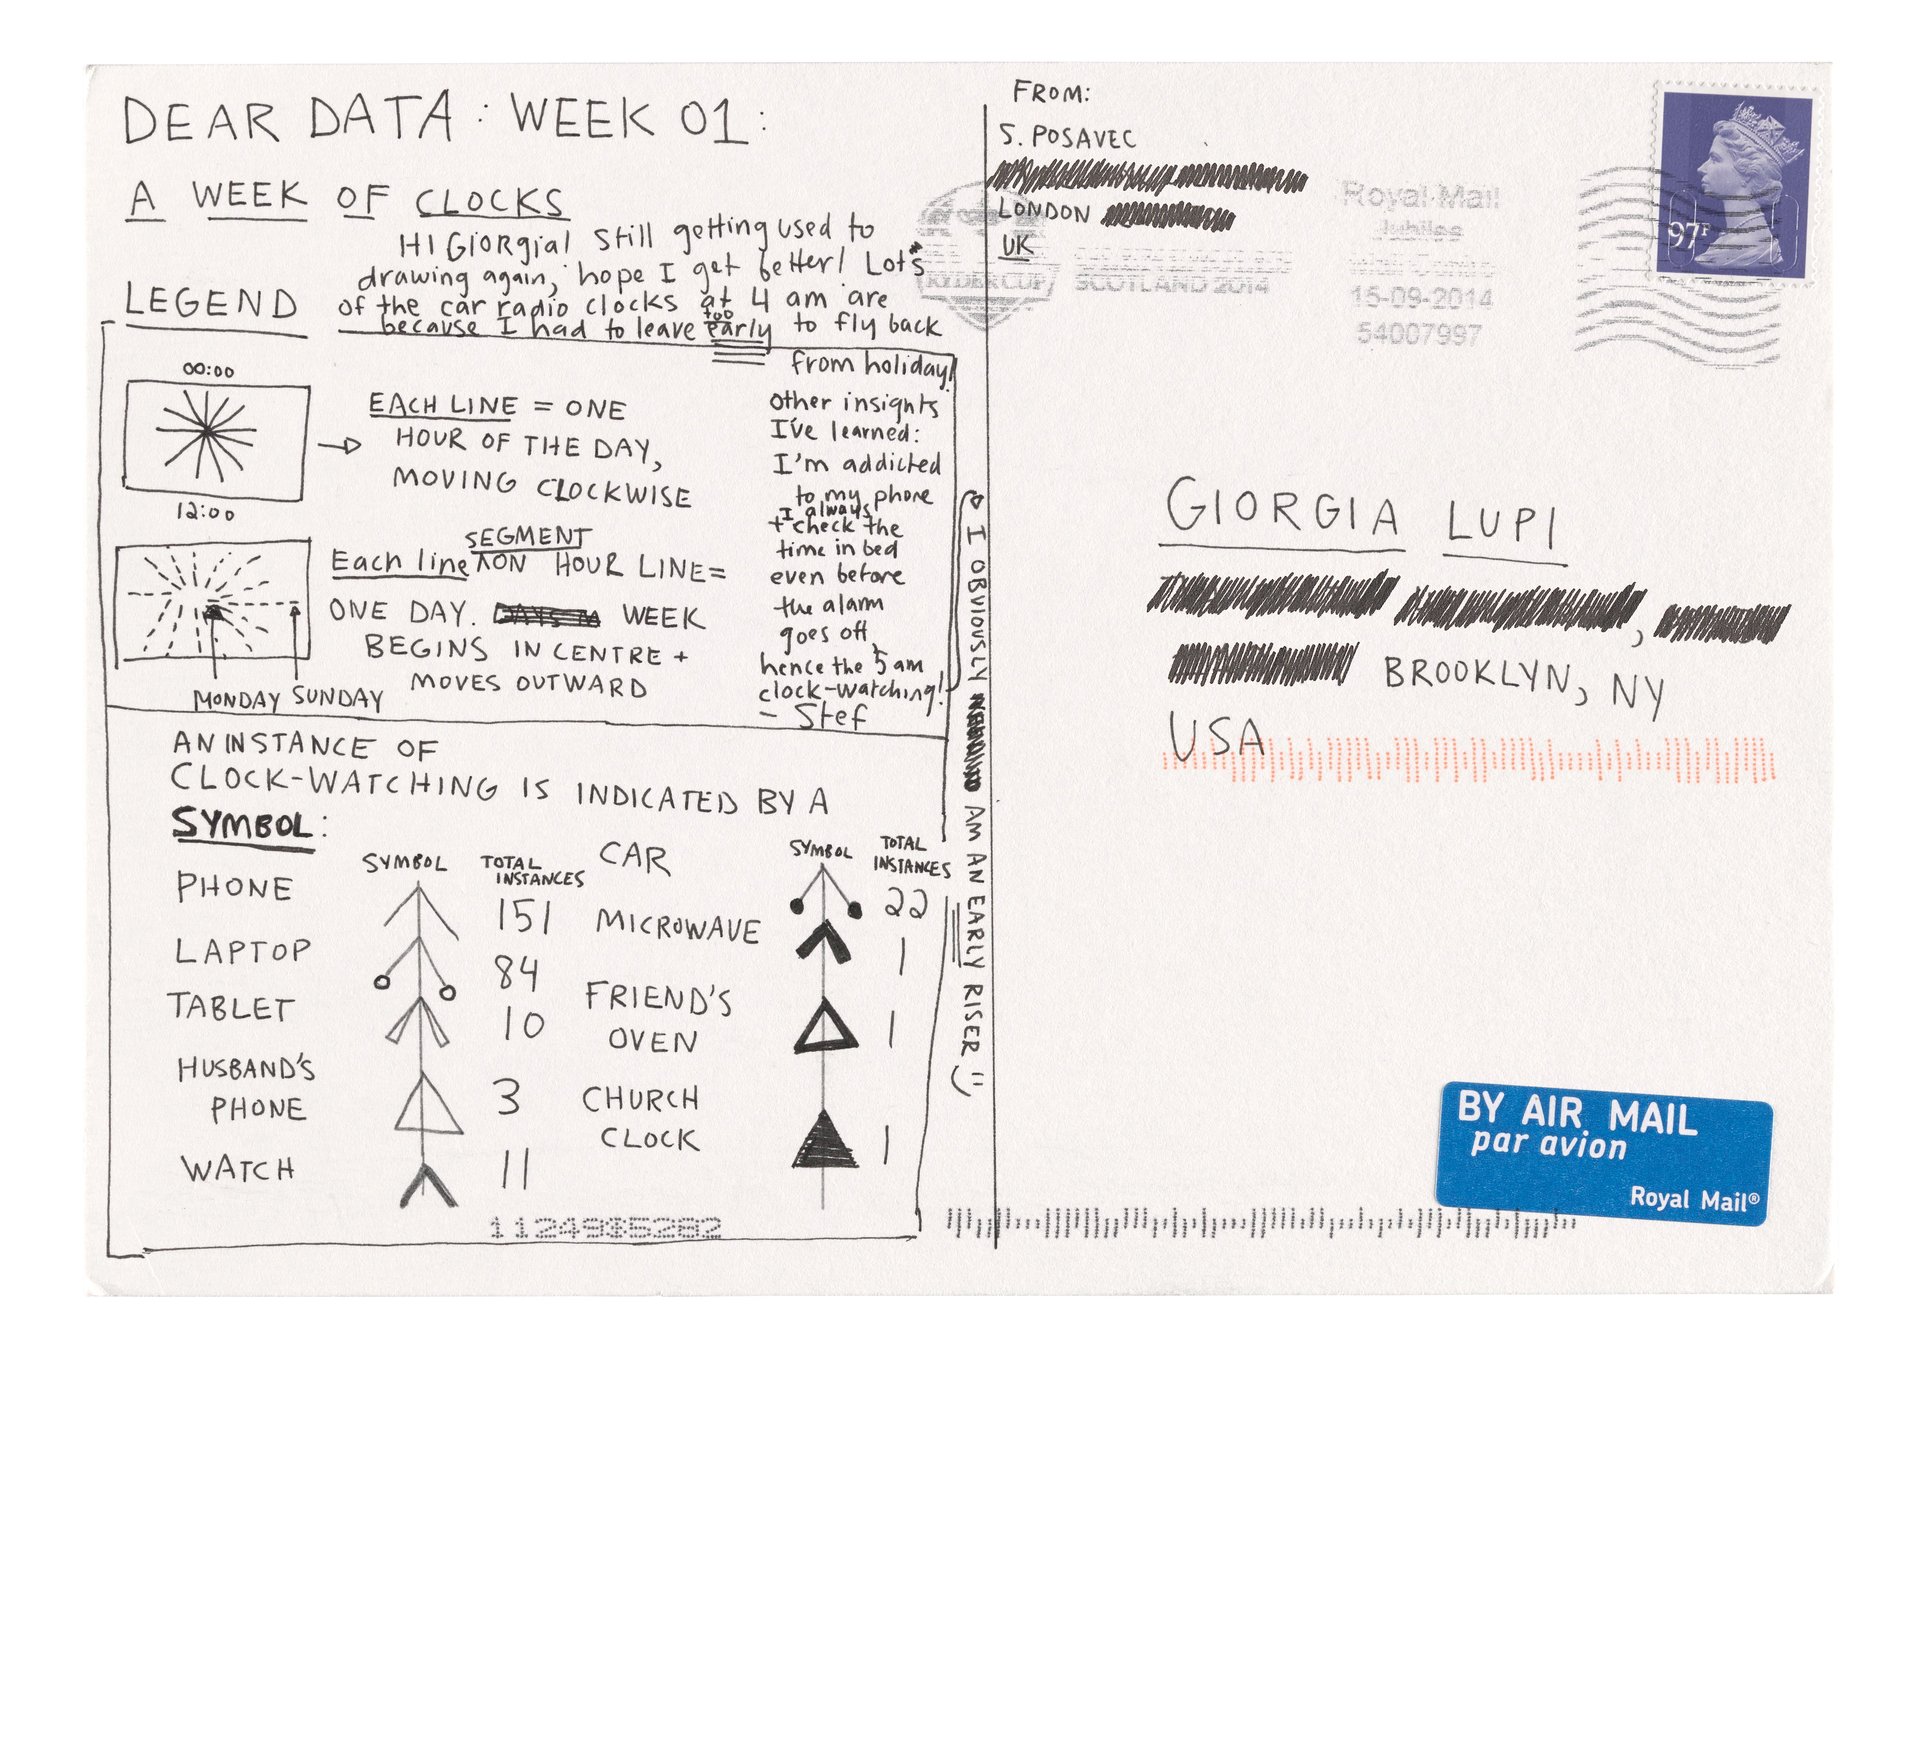 DEAR DATA: WEEK 01:
A WEEK OF CLOCKS
HI GIORGIA! Still getting used to
drawing again, hope I get better! Lots
of the car radio clocks at 4 am are
because I had to leave too early to fly back
from holiday!
other insights
I've learned:
I'm addicted
to my phone
+ I always check the
time in bed
even before
the alarm
goes off,
hence the 5 am
clock-watching!
- Stef
I OBVIOUSLY AM AN EARLY RISER
LEGEND
00:00
12:00
EACH LINE = ONE
HOUR OF THE DAY,
MOVING CLOCKWISE
Each line SEGMENT ON HOUR LINE =
ONE DAY. WEEK
BEGINS IN CENTRE +
MOVES OUTWARD
MONDAY SUNDAY
AN INSTANCE OF
CLOCK-WATCHING IS INDICATED BY A
SYMBOL:
SYMBOL TOTAL INSTANCES
PHONE 151
LAPTOP 84
TABLET 10
HUSBAND'S
PHONE 3
WATCH 11
SYMBOL TOTAL INSTANCES
CAR 22
MICROWAVE 1
FRIEND'S
OVEN 1
CHURCH
CLOCK 1
FROM:
S. POSAVEC
LONDON
UK
RYDER CUP
SCOTLAND 2014
Royal Mail
Jubilee
Mail Centre
15-09-2014
54007997
97P
GIORGIA LUPI
BROOKLYN, NY
USA
BY AIR MAIL
par avion
Royal Mail®